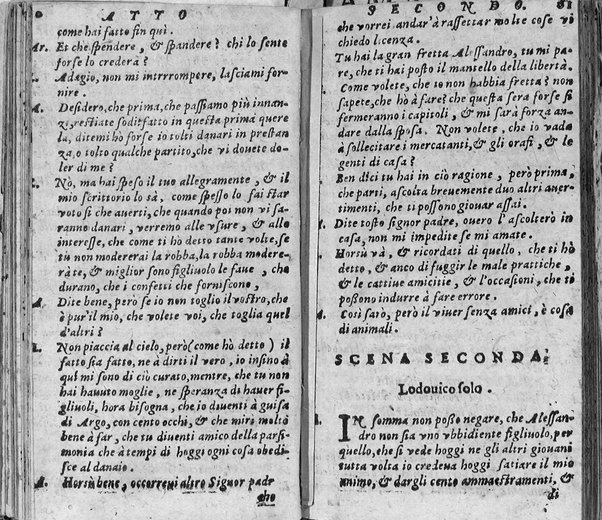 ATTO
come hai fatto fin quì.
Ar. Et che spendere, & spandere? chi lo sente
forse lo crederà?
Adagio, non mi intrrrompere, lasciami for-
nire.
A. Desidero, che prima, che passiamo più innan-
zi, restiate sodisfatto in questa prima quere
la, ditemi hò forse io tolti danari in prestan
za, o tolto qualche partito, che vi douete do-
ler di me?
Nò, ma hai speso il tuo allegramente, & il
mio scrittorio lo sà, come spesso lo fai star
voto si che auerti, che quando poi non vi sa-
ranno danari, verremo alle vsure, & allo
interesse, che come ti hò detto tante volte, se
tu non modererai la robba, la robba modere-
ràte, & miglior sono figliuolo le faue, che
durano, che i confetti che forniscono,
A. Dite bene, però se io non toglio il vostro, che
è pur'il mio, che volete voi, che toglia quel
d'altri?
L. Non piaccia al cielo, però (come hò detto) il
fatto sia fatto, ne à dirti il vero, io insino à
qui mi sono di ciò curato, mentre, che tu non
hai hauuto moglie, ne speranza di hauer fi-
gliuoli, hora bisogna, che io diuenti à guisa
di Argo, con cento occhi, & che miri molto
bene à far, che tu diuenti amico della parsi-
monia che à tempi di hoggi ogni cosa obedi-
sce al danaio.
A. Horsù bene, occorreui altro Signor padr
che
SECONDO. 81
che vorrei andar'à rassettar molte cose vi
chiedo licenza.
Tu hai la gran fretta Alessandro, tu mi pa-
re, che ti hai posto il mantello della libertà.
Come volete, che io non habbia fretta? non
sapete, che hò à fare? che questa sera forse si
fermeranno i capitoli, & mi sarà forza an-
dare dalla sposa. Non volete, che io vada
à sollecitare i mercatanti, & gli orafi, & le
genti di casa?
Ben dici tu hai in ciò ragione, però prima,
che parti, ascolta breuemente duo altri auer-
timenti, che ti possono giouar assai.
Dite tosto signor padre, ouero l'ascolterò in
casa, non mi impedite se mi amate.
Horsù và, & ricordati di quello, che ti hò
detto, & anco di fuggir le male prattiche,
& le cattiue amicitie, & l'occasioni, che ti
possono indurre à fare errore.
A. Così sarò, però il viuer senza amici, è cosa
di animali.
SCENA SECONDA,
Lodouico solo.
IN somma non posso negare, che Alessan-
dro non sia vno vbbidiente figliuolo, per
quello, che si vede hoggi ne gli altri giouani
tutta volta io credeua hoggi satiare il mio
animo, & dargli cento ammaestramenti, &
di